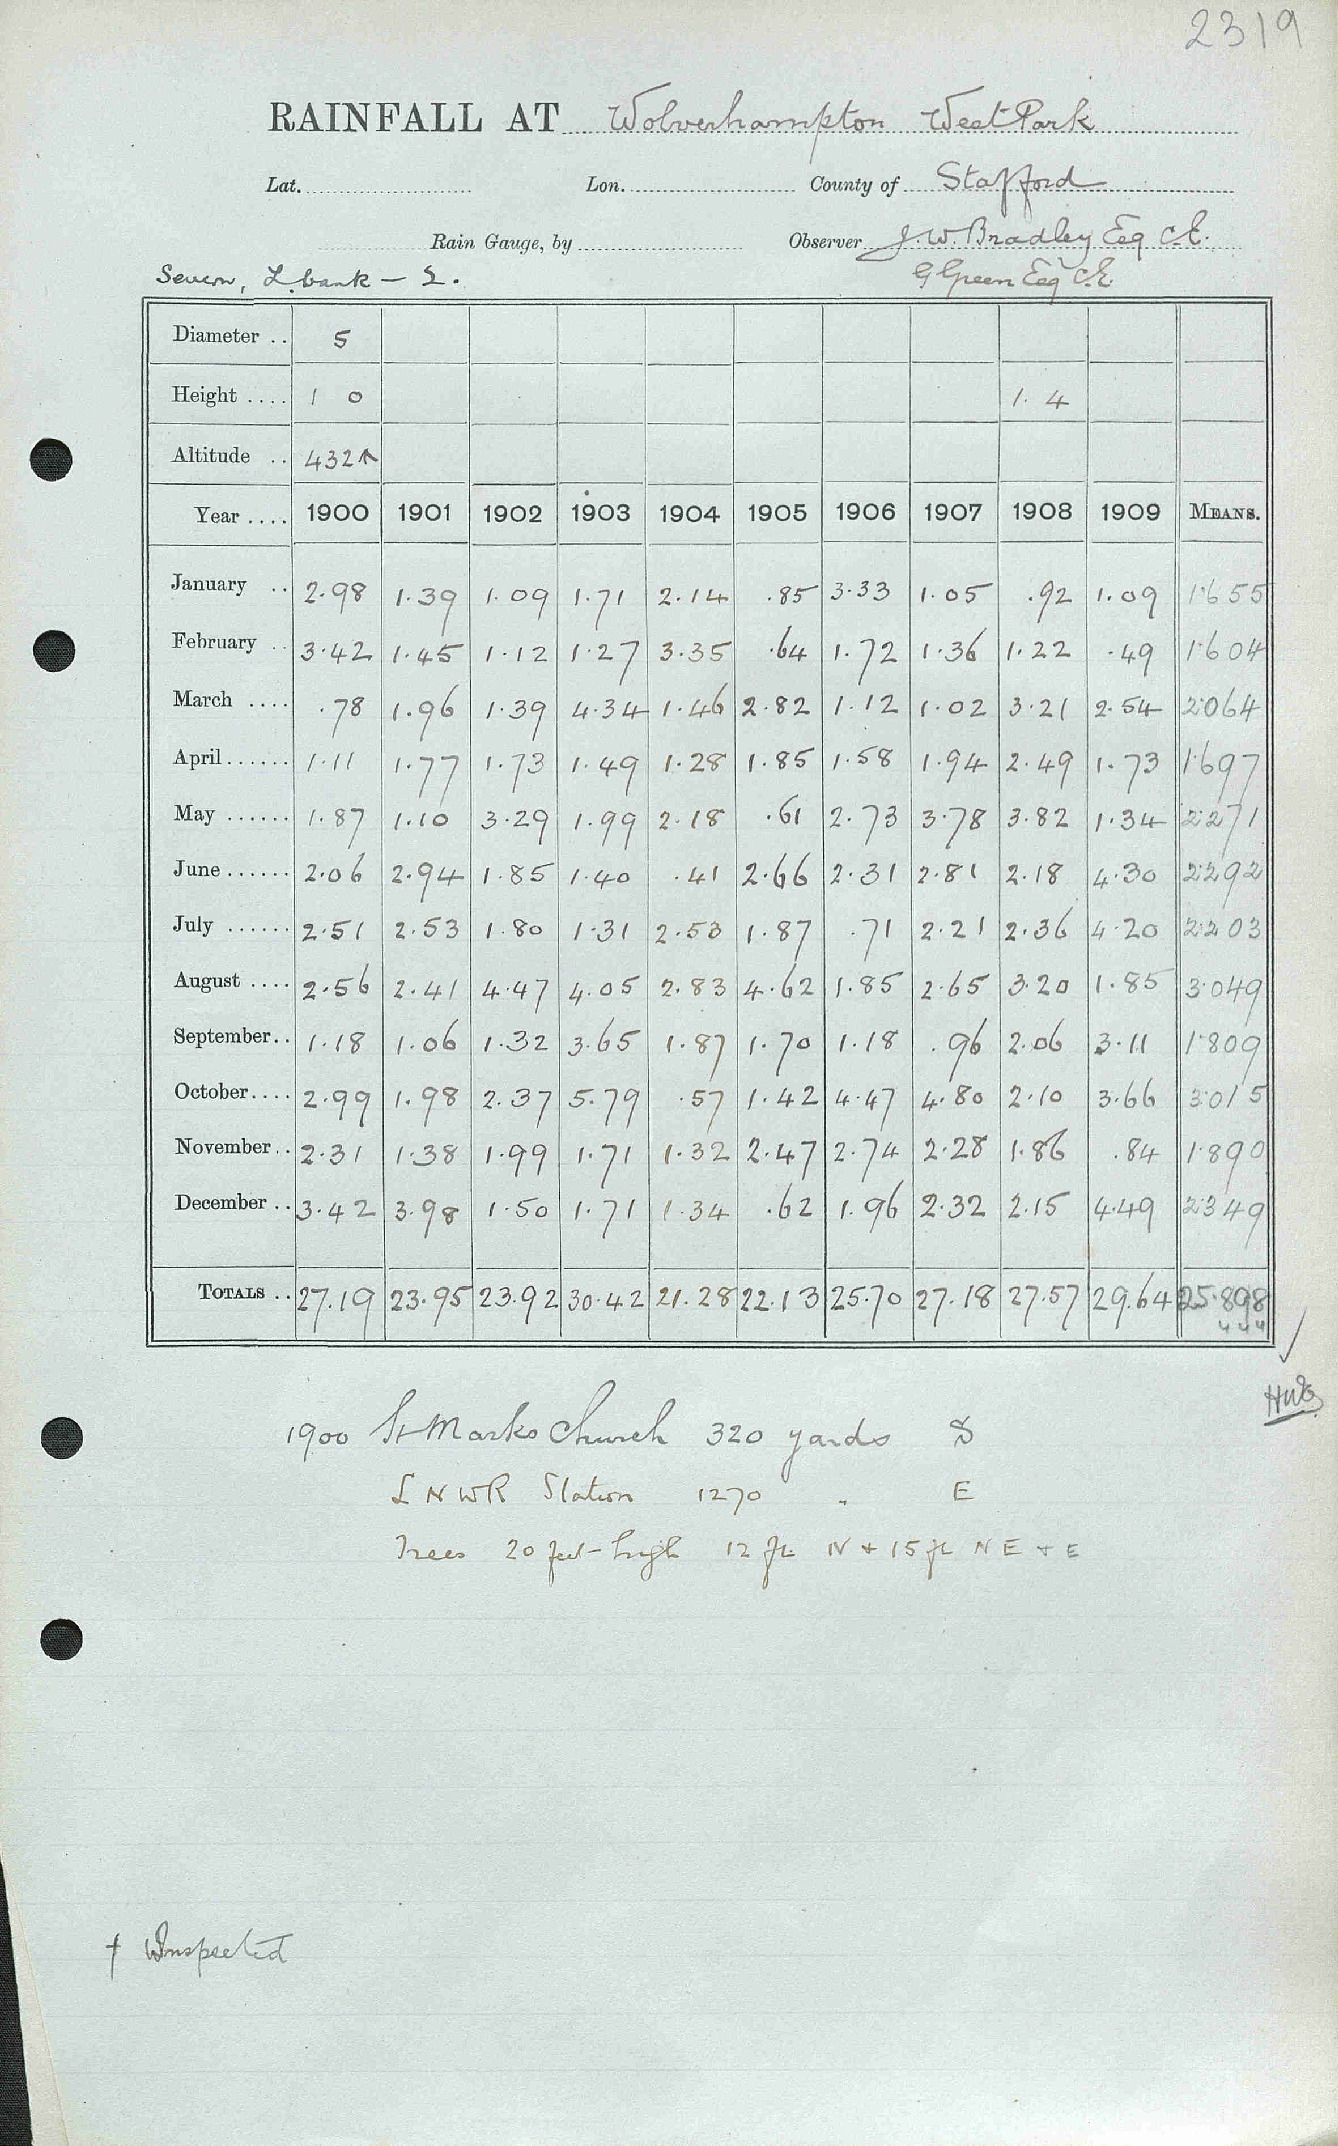 2319
RAINFALL AT Wolverhampton West Park
Lat. Lon. County of Stafford
Rain Gauge, by Observer J. W. Bradley Esq C.E.
Severn, L. bank – 2. G Green Esq C.E
Diameter .. 5
Height .... 1 0 1. 4
Altitude .. 432
Year .... 1900 1901 1902 1903 1904 1905 1906 1907 1908 1909 MEANS.
January .. 2.98 1.39 1.09 1.71 2.14 .85 3.33 1.05 .92 1.09 1.655
February .. 3.42 1.45 1.12 1.27 3.35 .64 1.72 1.36 1.22 .49 1.604
March .... .78 1.96 1.39 4.34 1.46 2.82 1.12 1.02 3.21 2.54 2.064
April...... 1.11 1.77 1.73 1.49 1.28 1.85 1.58 1.94 2.49 1.73 1.697
May ...... 1.87 1.10 3.29 1.99 2.18 .61 2.73 3.78 3.82 1.34 2.271
June ...... 2.06 2.94 1.85 1.40 .41 2.66 2.31 2.81 2.18 4.30 2.292
July ...... 2.51 2.53 1.80 1.31 2.53 1.87 .71 2.21 2.36 4.20 2.203
August .... 2.56 2.41 4.47 4.05 2.83 4.62 1.85 2.65 3.20 1.85 3.049
September.. 1.18 1.06 1.32 3.65 1.87 1.70 1.18 .96 2.06 3.11 1.809
October.... 2.99 1.98 2.37 5.79 .57 1.42 4.47 4.80 2.10 3.66 3.015
November.. 2.31 1.38 1.99 1.71 1.32 2.47 2.74 2.28 1.86 .84 1.890
December .. 3.42 3.98 1.50 1.71 1.34 .62 1.96 2.32 2.15 4.49 2.349
TOTALS .. 27.19 23.95 23.92 30.42 21.28 22.13 25.70 27.18 27.57 29.64 25.898
1900 St Marks Church 320 yards S
L N W R Station 1270 " E
Trees 20 feet high 12 ft N + 15 ft N E + E
† Inspected